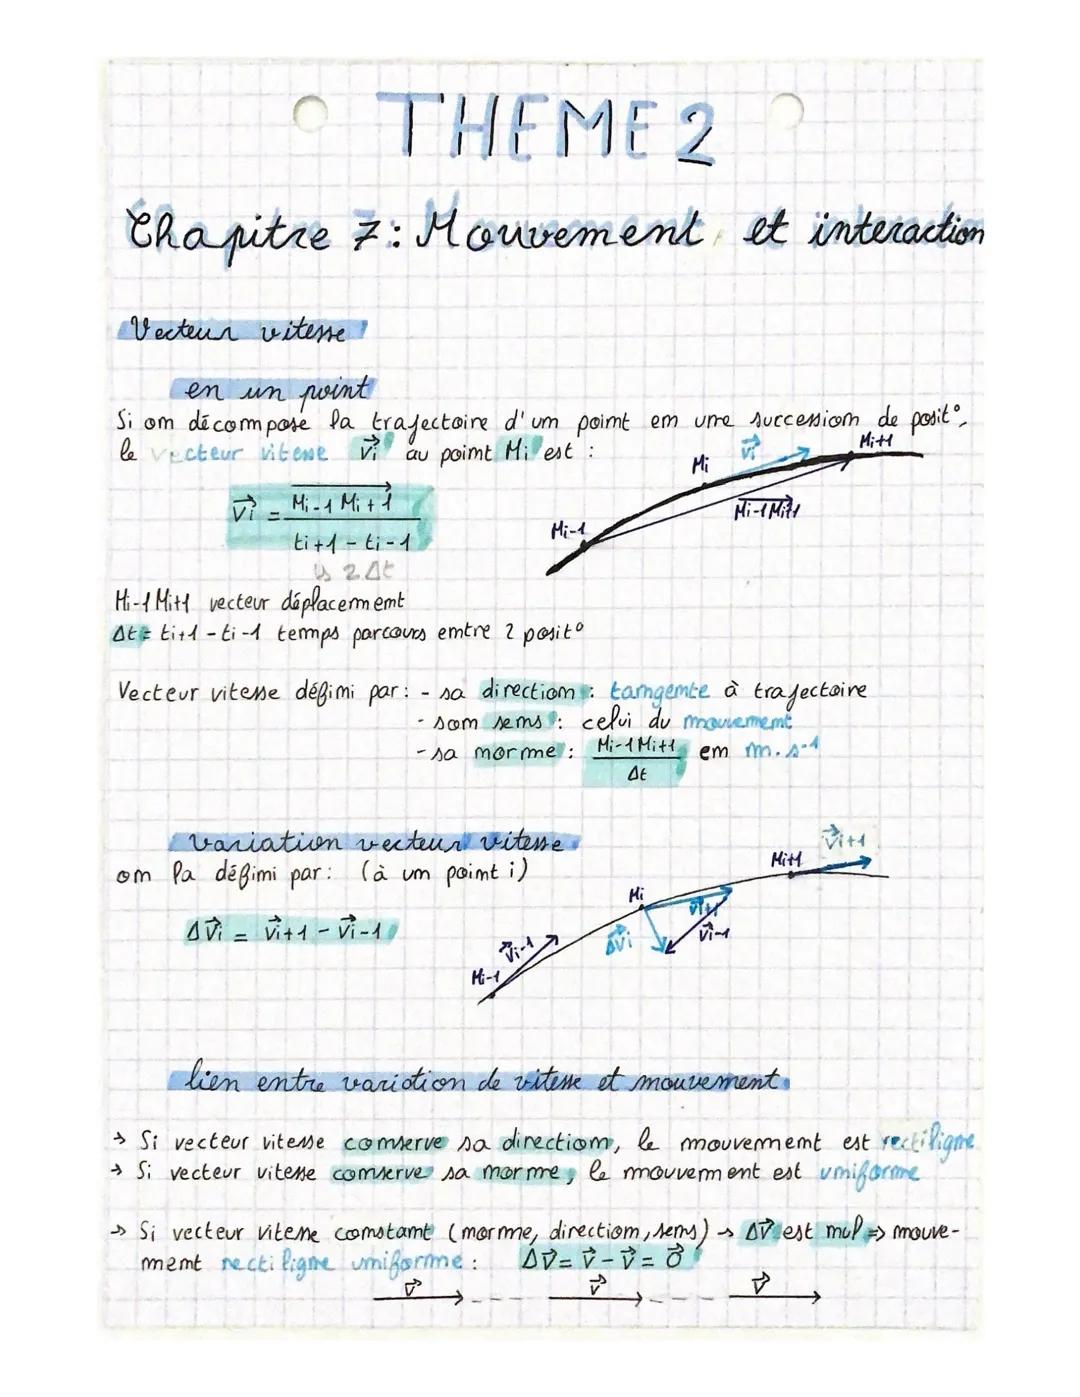 THEME 2
Chapitre 7: Mouvement et interaction
Vecteur vitesse
en un point
Si on décompose la trajectoire d'un point en une succession de posit°,
le vecteur vitesse v⃗i au point Mi est :
v⃗i = Mi-1 Mi+1 / ti+1 - ti-1
↳ 2Δt
Mi-1
Mi
v⃗i
Mi+1
Mi-1Mi+1
Mi-1Mi+1 vecteur déplacement
Δt = ti+1 - ti-1 temps parcours entre 2 posit°
Vecteur vitesse défini par : - sa direction : tangente à trajectoire
- son sens : celui du mouvement
- sa norme : Mi-1Mi+1 / Δt en m.s-1
variation vecteur vitesse
on la défini par : (à un point i)
Δv⃗i = v⃗i+1 - v⃗i-1
Mi-1
v⃗i-1
Mi
Δv⃗i
v⃗i+1
v⃗i-1
Mi+1
v⃗i+1
lien entre variation de vitesse et mouvement
→ Si vecteur vitesse conserve sa direction, le mouvement est rectiligne
→ Si vecteur vitesse conserve sa norme, le mouvement est uniforme
→ Si vecteur vitesse constant (norme, direction, sens) → Δv⃗ est nul => mouve-
ment rectiligne uniforme : Δv⃗ = v⃗ - v⃗ = 0⃗
v⃗ v⃗ v⃗